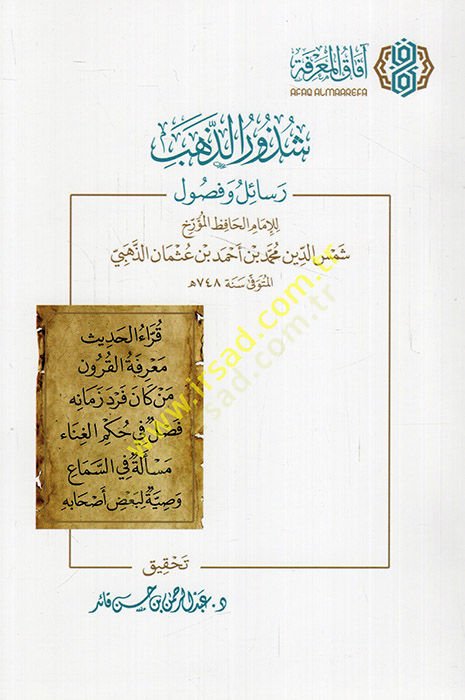 آفاق المعرفة
AFAQ ALMAAREFA
شُذُورُ الذَّهَبِ
رَسَائِل وَفُصُول
لِلإِمَامِ الحَافِظِ المُؤَرِّخ
شَمْسِ الدِّينِ مُحَمَّد بْنِ أَحْمَد بْنِ عُثْمَانَ الذَّهَبِيّ
المُتَوَفَّى سَنَة ٧٤٨هـ
قُرَّاءُ الحَدِيث
مَعْرِفَةُ القُرُون
مَنْ كَانَ فَرْدَ زَمَانِه
فَصْلٌ فِي حُكْمِ الغِنَاء
مَسْأَلَةٌ فِي السَّمَاع
وَصِيَّةٌ لِبَعْضِ أَصْحَابِه
www.irsad.com.tr
تَحْقِيق
د. عَبْدُ الرَّحْمٰنِ بْن حَسَن قَائِد